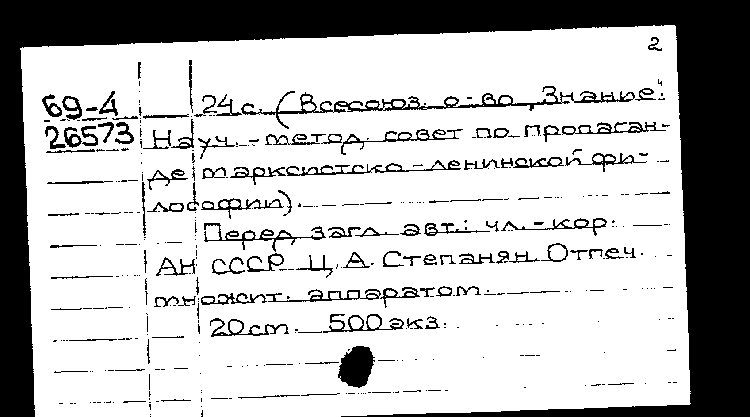 2
69-4 24 с. (Всесоюз. о-во „Знание".
26573 Науч.-метод. совет по пропаган-
де марксистско-ленинской фи-
лософии).
Перед загл. авт.: чл.-кор.
АН СССР Ц. А. Степанян. Отпеч.
множит. аппаратом.
20 см. 500 экз.